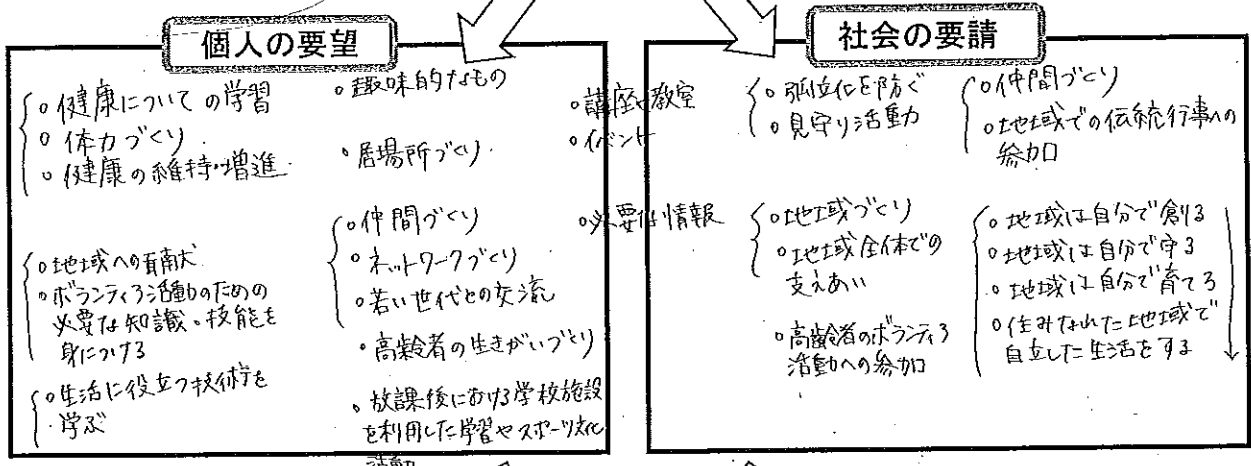 個人の要望
○健康についての学習
○体力づくり
○健康の維持・増進
○地域への貢献
○ボランティア活動のための
必要な知識・技能を
身につける
○生活に役立つ技術を
学ぶ
○趣味的なもの
○居場所づくり
○仲間づくり
○ネットワークづくり
○若い世代との交流
○高齢者の生きがいづくり
○放課後における学校施設
を利用した学習やスポーツ文化
活動
○講座・教室
○イベント
○必要な情報
社会の要請
○孤立化を防ぐ
○見守り活動
○地域づくり
○地域全体での
支えあい
○高齢者のボランティア
活動への参加
○仲間づくり
○地域での伝統行事への
参加
○地域は自分で創る
○地域は自分で守る
○地域は自分で育てる
○住みなれた地域で
自立した生活をする